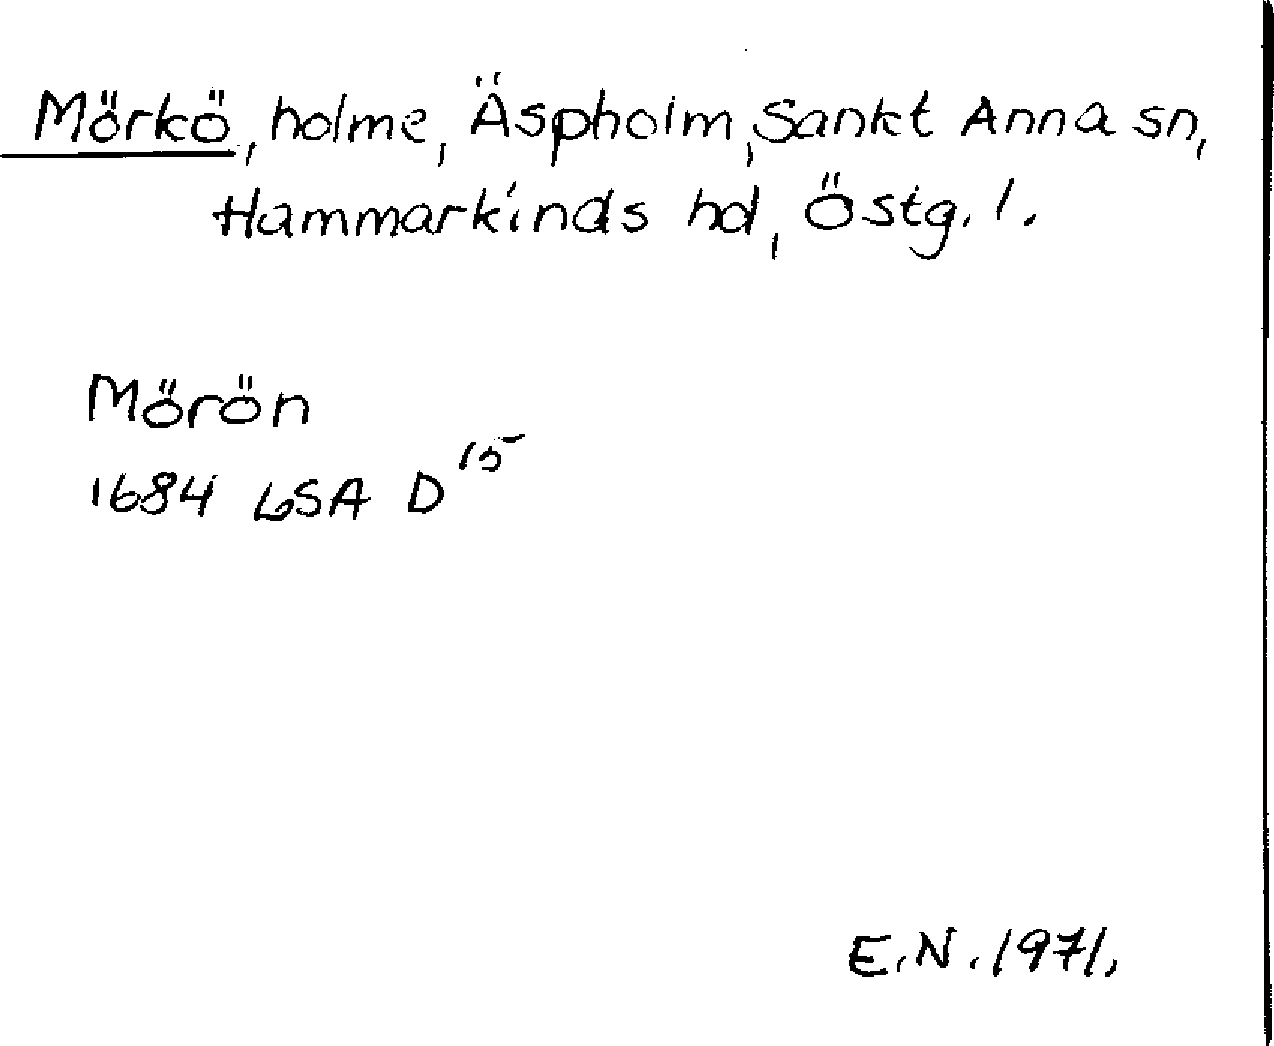 Mörkö, holme, Äspholm, Sankt Anna sn,
Hammarkinds hd, Östg. l.
Mörön
1684 LSA D 15
E.N. 1971.